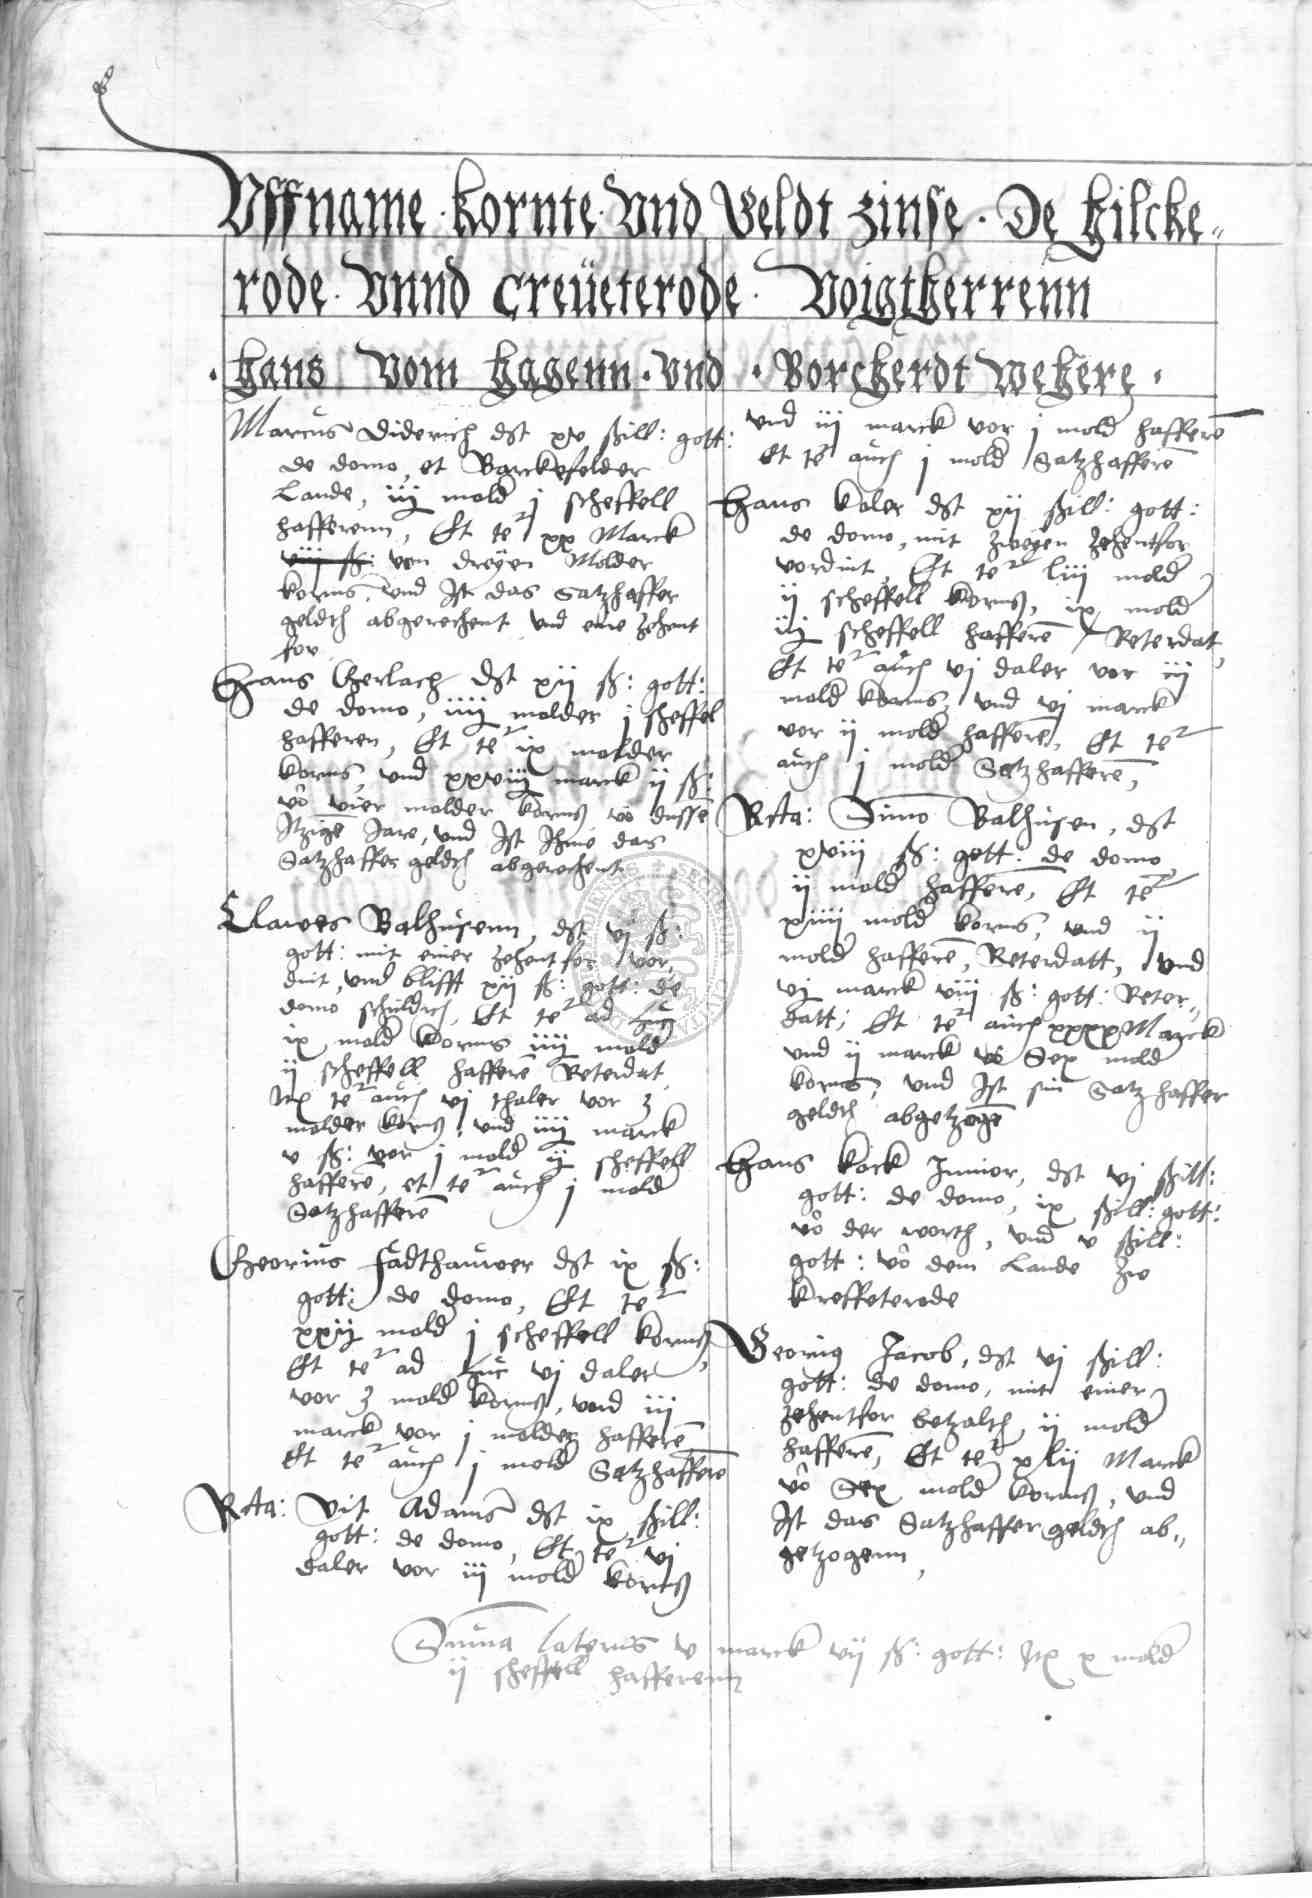 Uffname · kornte · Und Geldt zinse · De hilcke„
rode · Vnnd Creueterode · Voigtherrenn
· Hans Vom Hagenn · Und · Borcherdt Wekere ·
Marcus Diderich dst xv ßill: gott:
de domo, et Barckefelder
Lande, iiij mold j scheffell
hafferenn, Et te² xx Marck
viij ß: von dreyen Molder
korns, vnd Jst das Satzhaffer
geldch abgerechent vnd eine zehent
for
Hans Gerlach dst xij ß: gott:
de domo, iiij molder j sheffel
hafferen, Et te² ix molder
korns vnd xxviij marck ij ß:
vō vier molder korns vō dusse
Jtzigē Jare, vnd Jst Jhme das
Satzhaffer geldch abgerechent
Clawes Balhusenn, dst vj ß:
gott: mit einer zehentfor vor,
dint, vnd blifft xij ß: gott: de
domo schuldich, Et te² ad huc
ix mold korns iiij mold
ij scheffell hafferē Reterdat
Itē te² auch vj thaler vor 3
molder korns, vnd iiij marck
v ß: vor j mold ij scheffell
hafferē, et te² auch j mold
Satzhafferē
Georius fadthauwer dst ix ß:
gott: de domo, Et te²
xxij mold j scheffell korns,
Et te² ad huc vj daler
vor 3 mold korns, vnd iij
marck vor j molder hafferē
Et te² auch j mold Satzhafferē
Rcta: Vit Adams dst ix ßill:
gott: de domo, Et te² vj
daler vor iij mold korns
vnd iij marck vor j mold hafferē
Et te² auch j mold Satzhafferē
Hans koler dst xij ßill: gott:
de domo, mit zweyen zehentfor
vordint, Et te² liij mold
ij scheffell korns, ix mold
iij scheffell hafferē Reterdat,
Et te² auch vj daler vor iij
mold korns, vnd vj marck
vor ij mold hafferē, Et te²
auch j mold Satzhafferē,
Rcta: Simo Balhusen, dst
xviij ß: gott: de domo
ij mold hafferē, Et te²
xiiij mold korns, vnd ij
mold hafferē, Reterdatt, vnd
vj marck viij ß: gott: Reter„
datt; Et te² auch xxxx Marck
vnd ij marck vō Sex mold
korns, vnd Jst sin Satzhaffer
geldch abgetzogē
Hans kock Junior, dst vj ßill:
gott: de domo, ix ßill: gott:
vō der worth, vnd v ßill:
gott: vō dem Lande zw
kreffeterode
Georius Jacob, dst vj ßill:
gott: de domo, mit einer
zehentfor betzalth, ij mold
hafferē, Et te² xlij Marck
vō Sex mold korns, vnd
Jst das Satzhaffer geldch ab„
getzogenn,
Suma lateris v marck vij ß: gott: Itē x mold
ij sheffell hafferenn